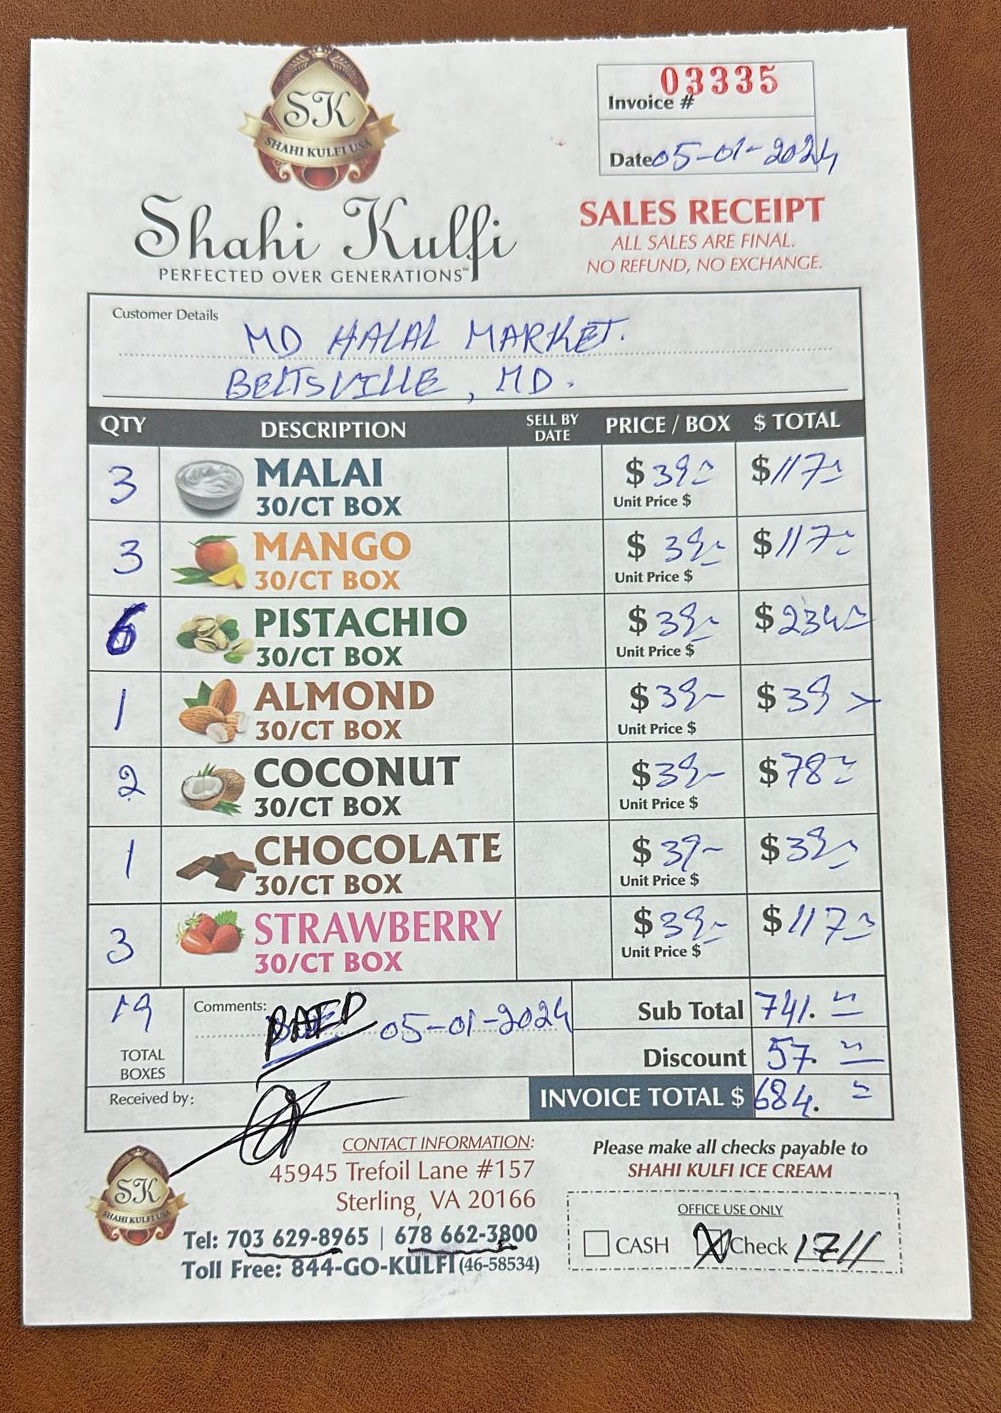 SK
SHAHI KULFI USA
Shahi Kulfi
PERFECTED OVER GENERATIONS™
03335
Invoice #
Date 05-01-2024
SALES RECEIPT
ALL SALES ARE FINAL.
NO REFUND, NO EXCHANGE.
Customer Details
MD HALAL MARKET.
BELTSVILLE, MD.
QTY DESCRIPTION SELL BY DATE PRICE / BOX $ TOTAL
3 MALAI $ 39 $ 117
30/CT BOX Unit Price $
3 MANGO $ 39 $ 117
30/CT BOX Unit Price $
6 PISTACHIO $ 39 $ 234
30/CT BOX Unit Price $
1 ALMOND $ 39 $ 39
30/CT BOX Unit Price $
2 COCONUT $ 39 $ 78
30/CT BOX Unit Price $
1 CHOCOLATE $ 39 $ 39
30/CT BOX Unit Price $
3 STRAWBERRY $ 39 $ 117
30/CT BOX Unit Price $
19 Comments: 05-01-2024 Sub Total 741.
TOTAL BOXES Discount 57.
Received by: INVOICE TOTAL $ 684.
SK
SHAHI KULFI USA
CONTACT INFORMATION:
45945 Trefoil Lane #157
Sterling, VA 20166
Tel: 703 629-8965 | 678 662-3800
Toll Free: 844-GO-KULFI (46-58534)
Please make all checks payable to
SHAHI KULFI ICE CREAM
OFFICE USE ONLY
CASH Check 1711